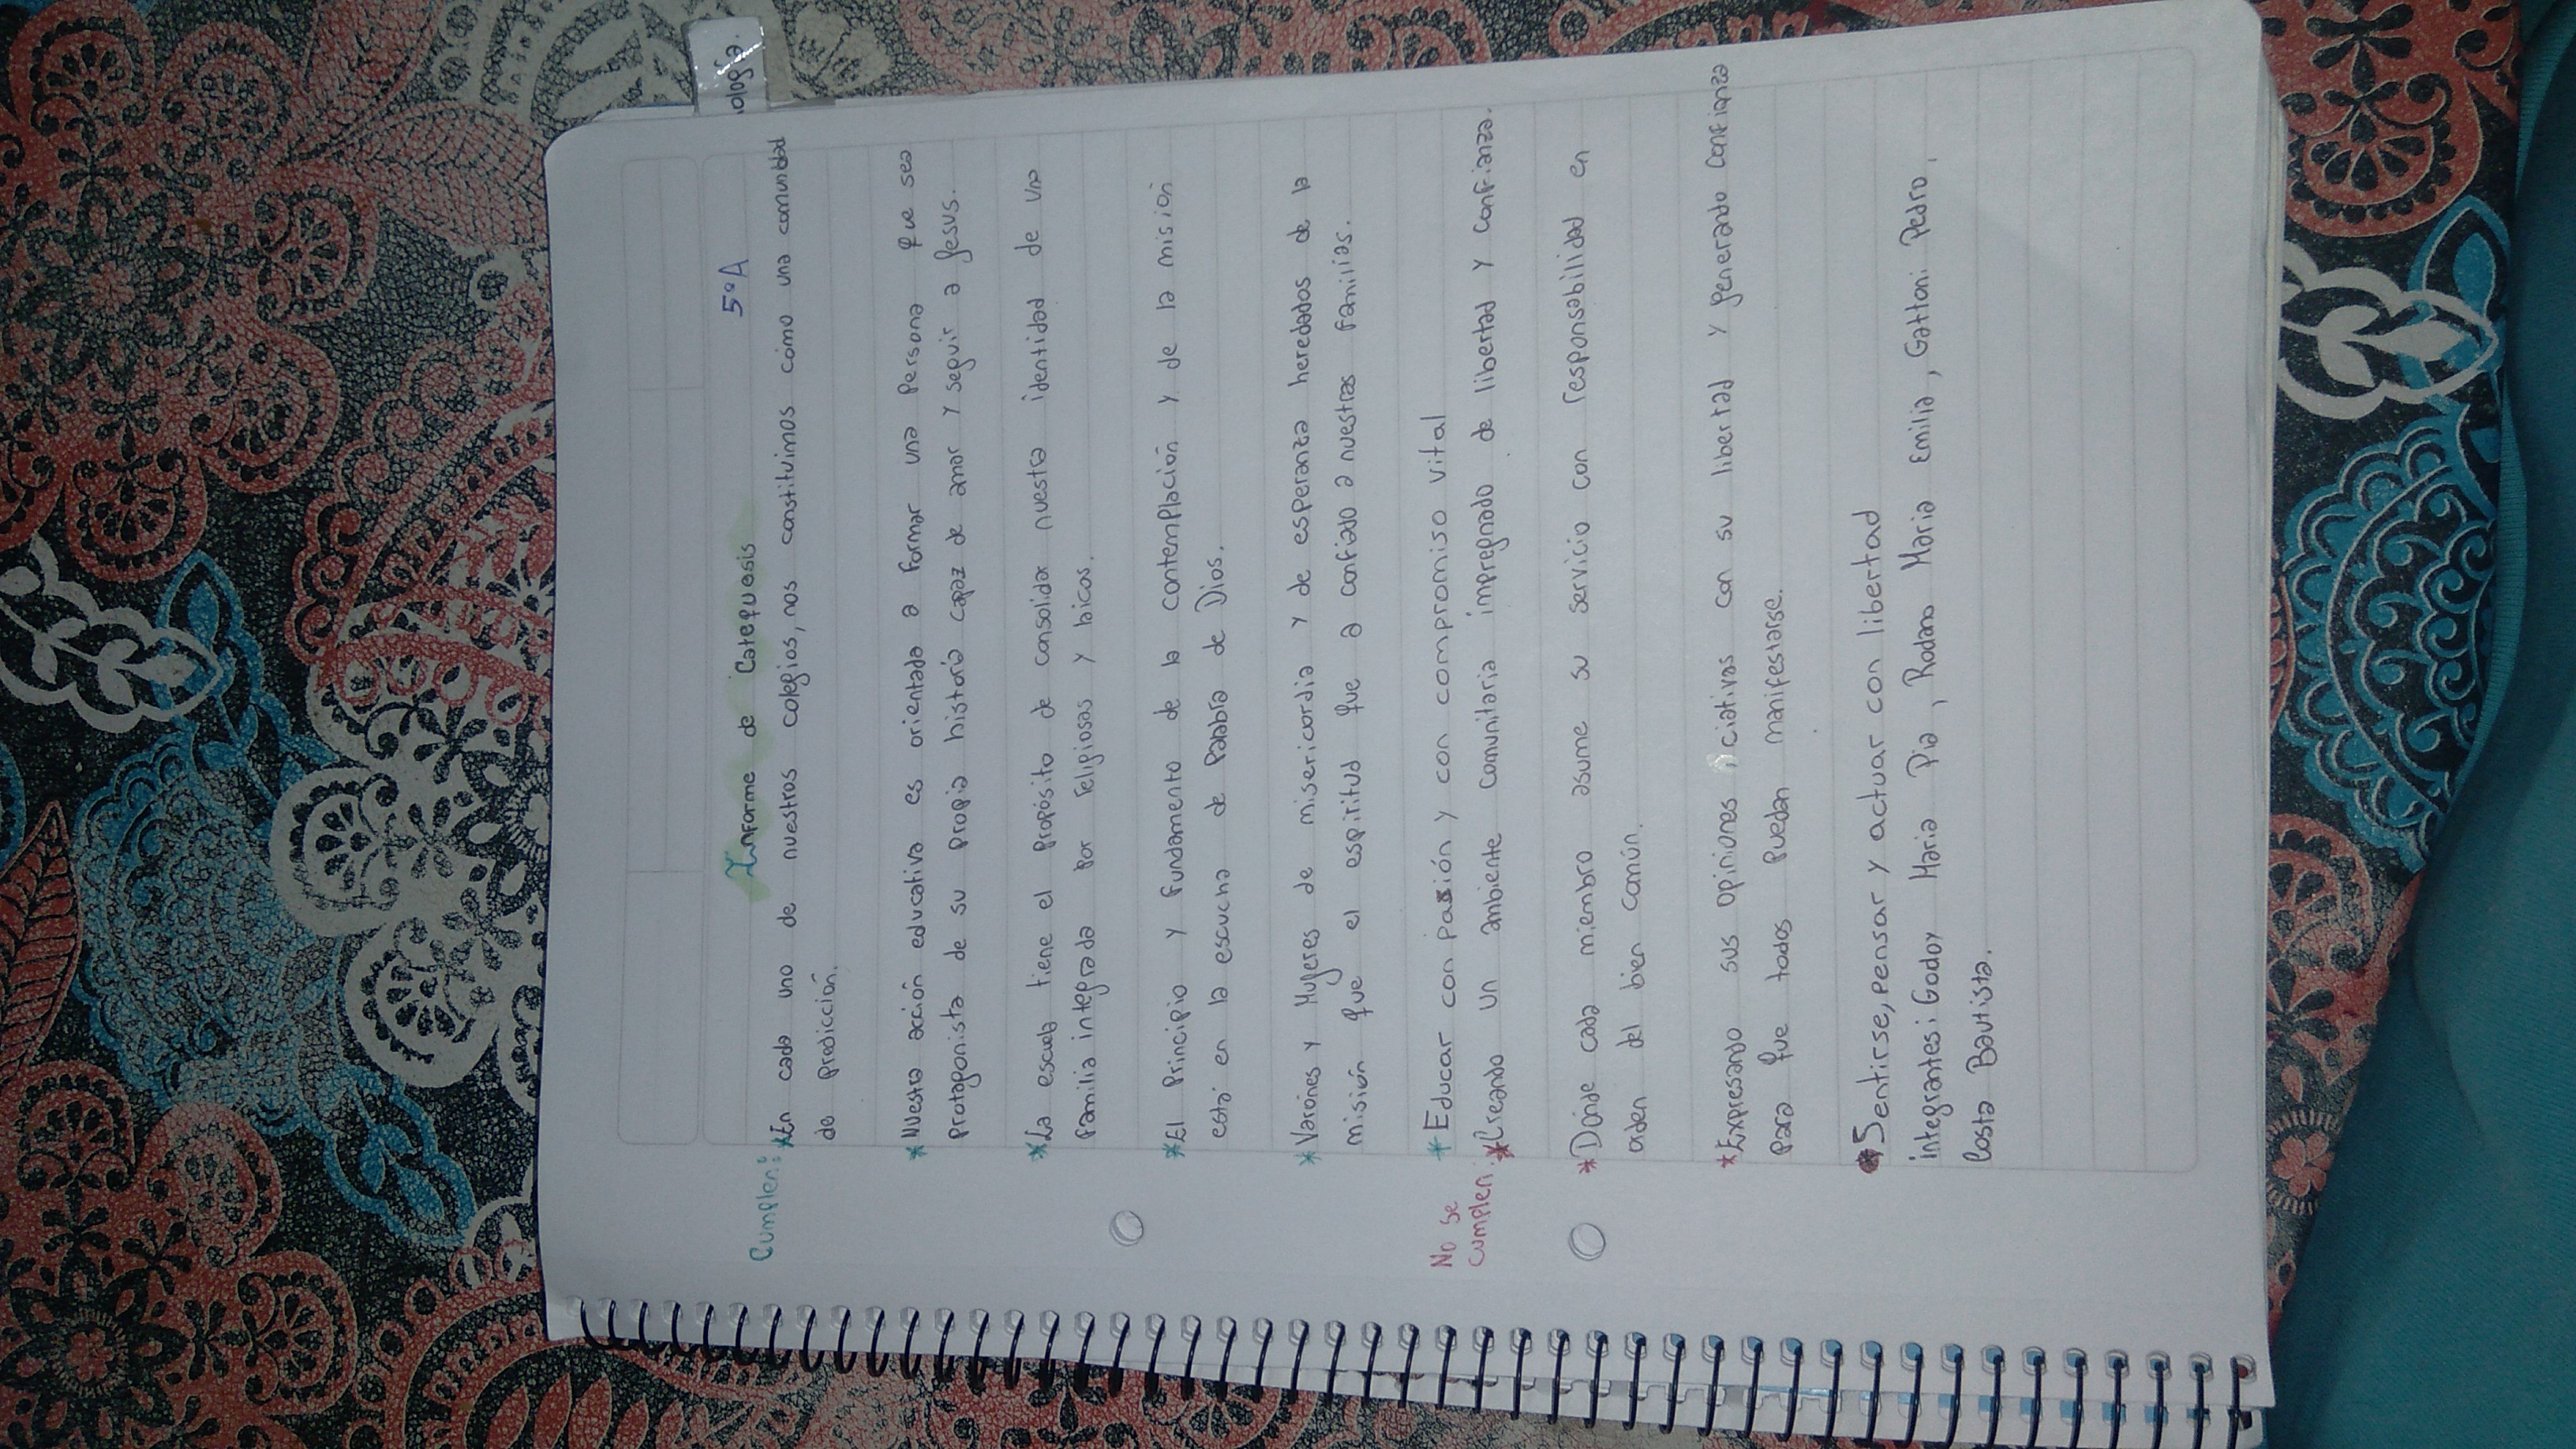 ología.
Informe de Catequesis 5°A
Cumplen: *En cada uno de nuestros colegios, nos constituimos cómo una comunidad
de predicción.
*Nuestra acción educativa es orientada a formar una persona que sea
protagonista de su propia historia capaz de amar y seguir a Jesus.
*La escuela tiene el propósito de consolidar nuestra identidad de una
familia integrada por religiosas y laicos.
*El principio y fundamento de la contemplación y de la misión
está en la escucha de Palabra de Dios.
*Varones y Mujeres de misericordia y de esperanza heredados de la
misión que el espiritud que a confiado a nuestras familias.
*Educar con pasión y con compromiso vital
No se
cumplen: *Creando un ambiente comunitaria impregnado de libertad y confianza.
*Dónde cada miembro asume su servicio con responsabilidad en
orden del bien común.
*Expresando sus opiniones, ciativas con su libertad y generando confianza
para que todos puedan manifestarse.
Sentirse, pensar y actuar con libertad
integrantes: Godoy Maria Pia, Rodano Maria Emilia, Gattoni Pedro,
Costa Bautista.